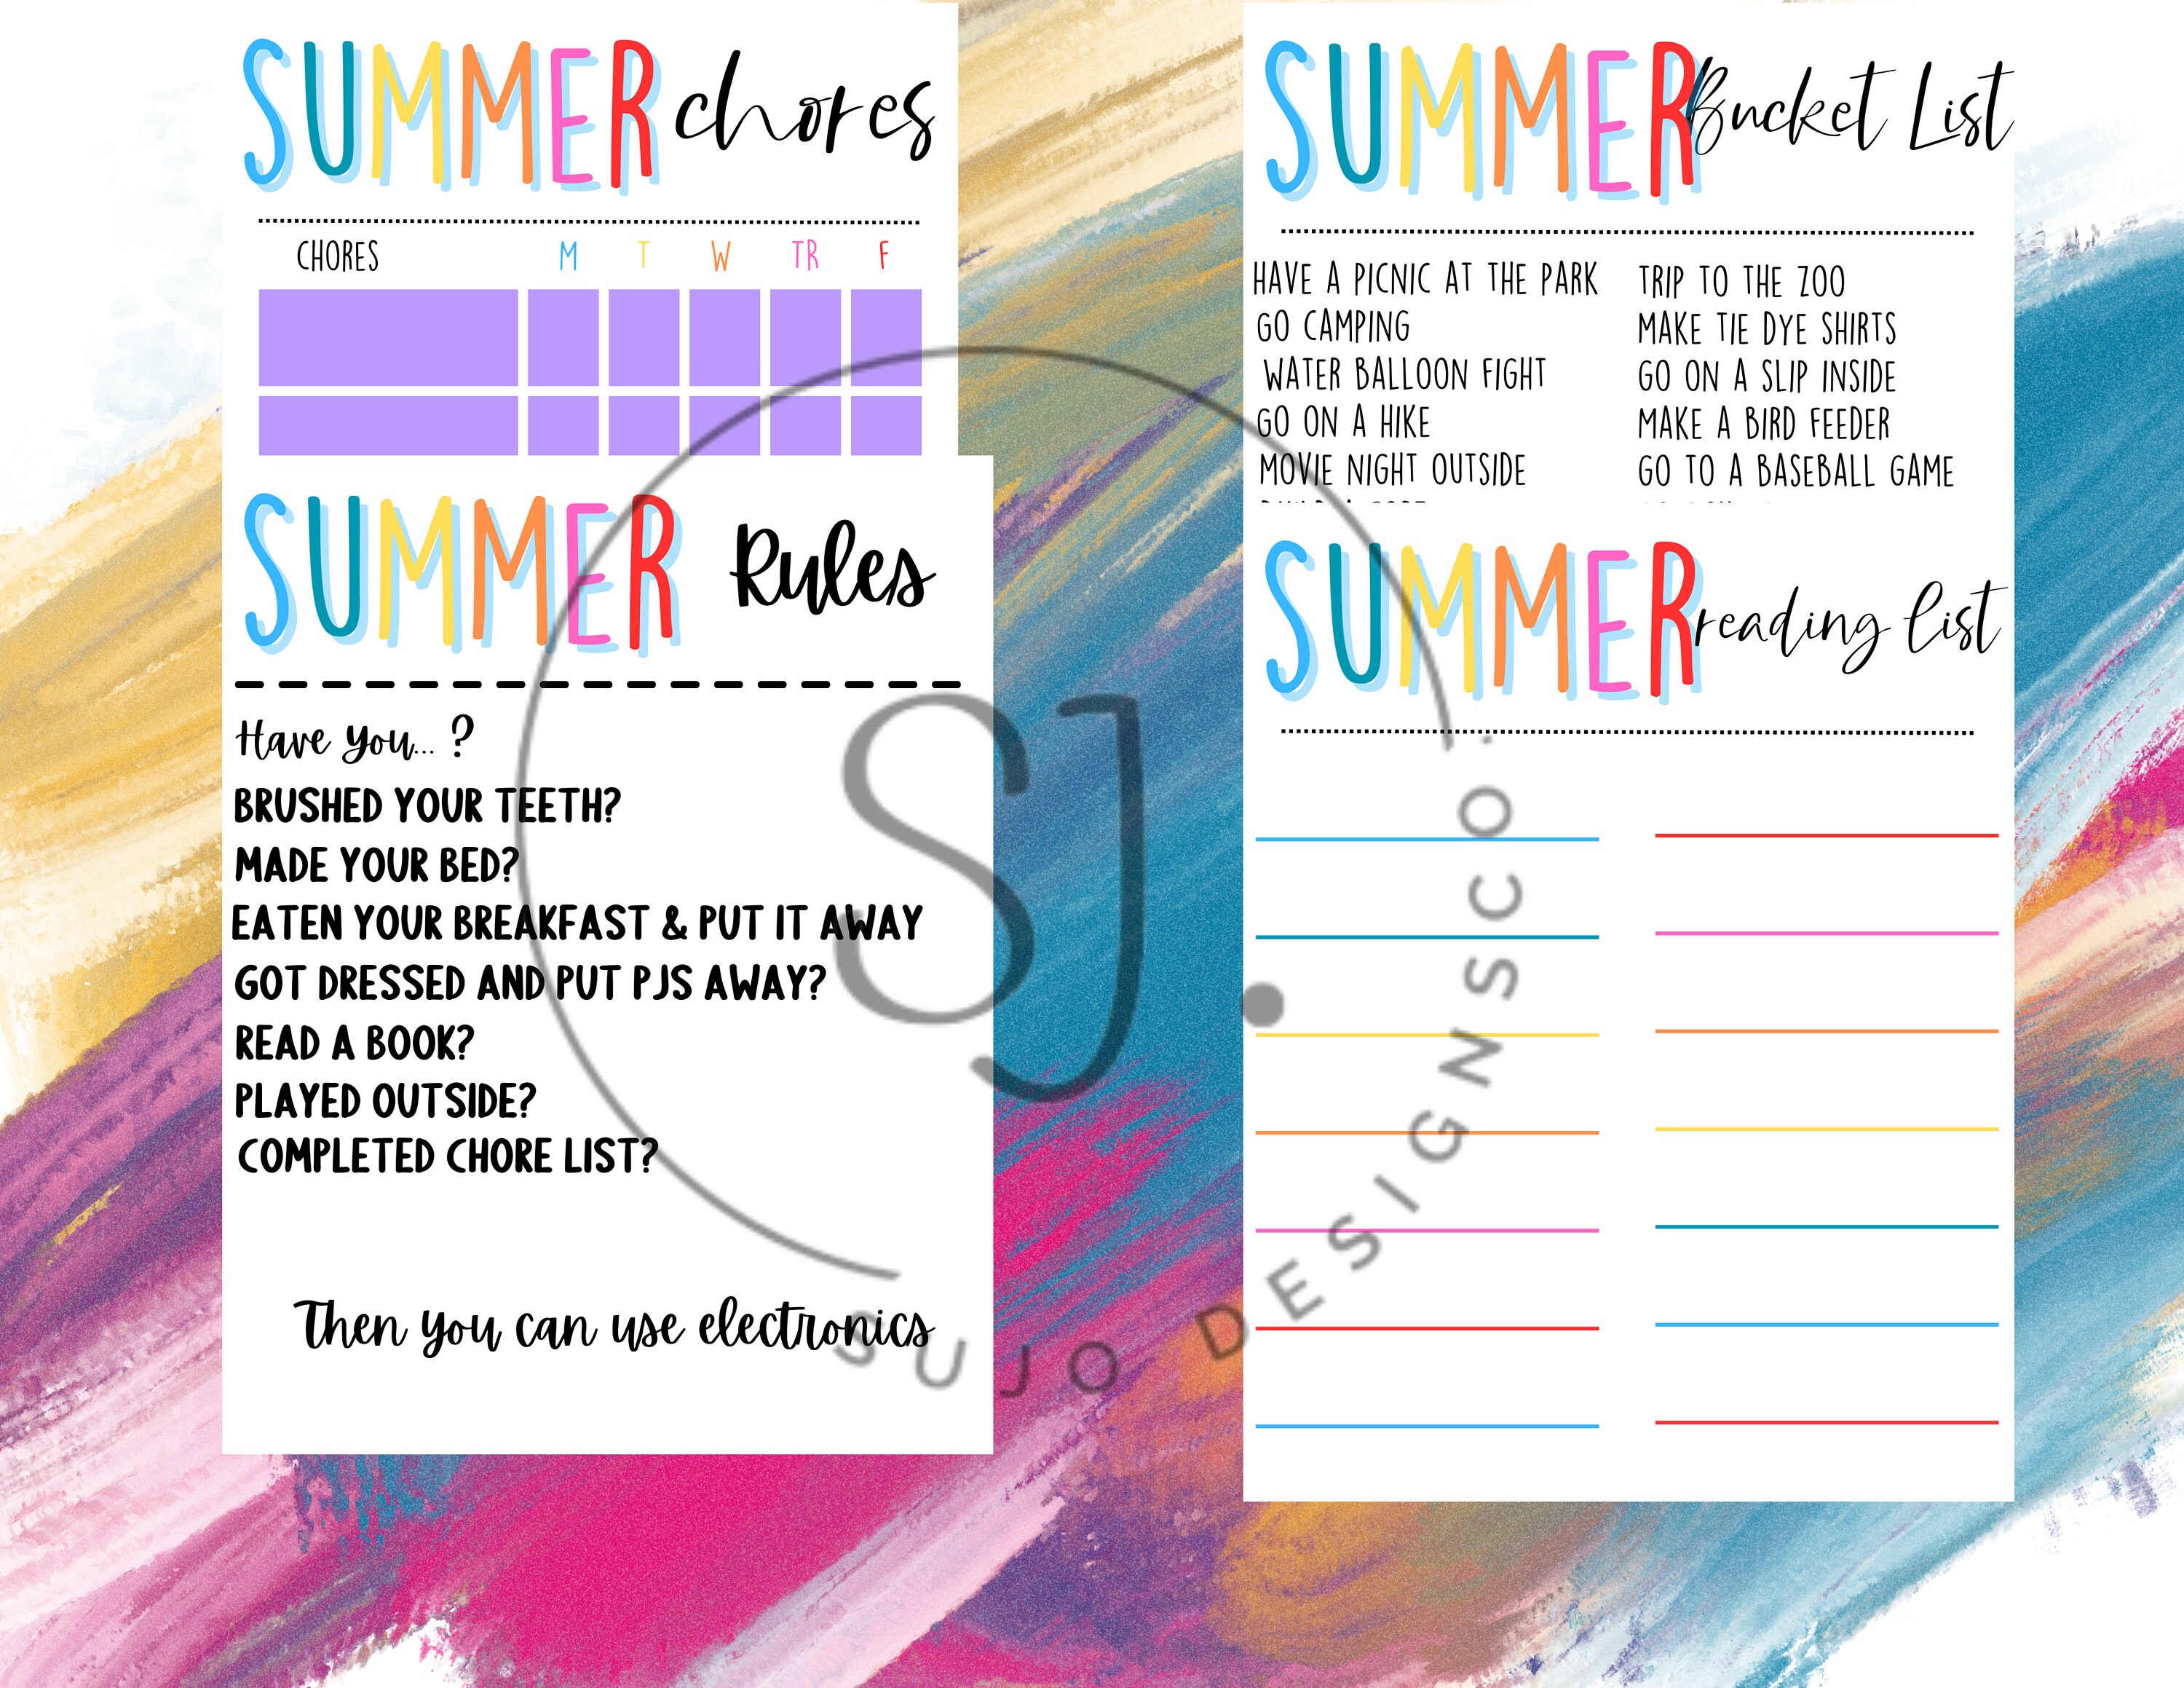 SUMMER chores
CHORES M T W TR F
SUMMER Rules
Have you... ?
BRUSHED YOUR TEETH?
MADE YOUR BED?
EATEN YOUR BREAKFAST & PUT IT AWAY
GOT DRESSED AND PUT PJS AWAY?
READ A BOOK?
PLAYED OUTSIDE?
COMPLETED CHORE LIST?
Then you can use electronics
SUMMER Bucket List
HAVE A PICNIC AT THE PARK
GO CAMPING
WATER BALLOON FIGHT
GO ON A HIKE
MOVIE NIGHT OUTSIDE
TRIP TO THE ZOO
MAKE TIE DYE SHIRTS
GO ON A SLIP INSIDE
MAKE A BIRD FEEDER
GO TO A BASEBALL GAME
SUMMER reading list
SJ.
SUJO DESIGNSCO.